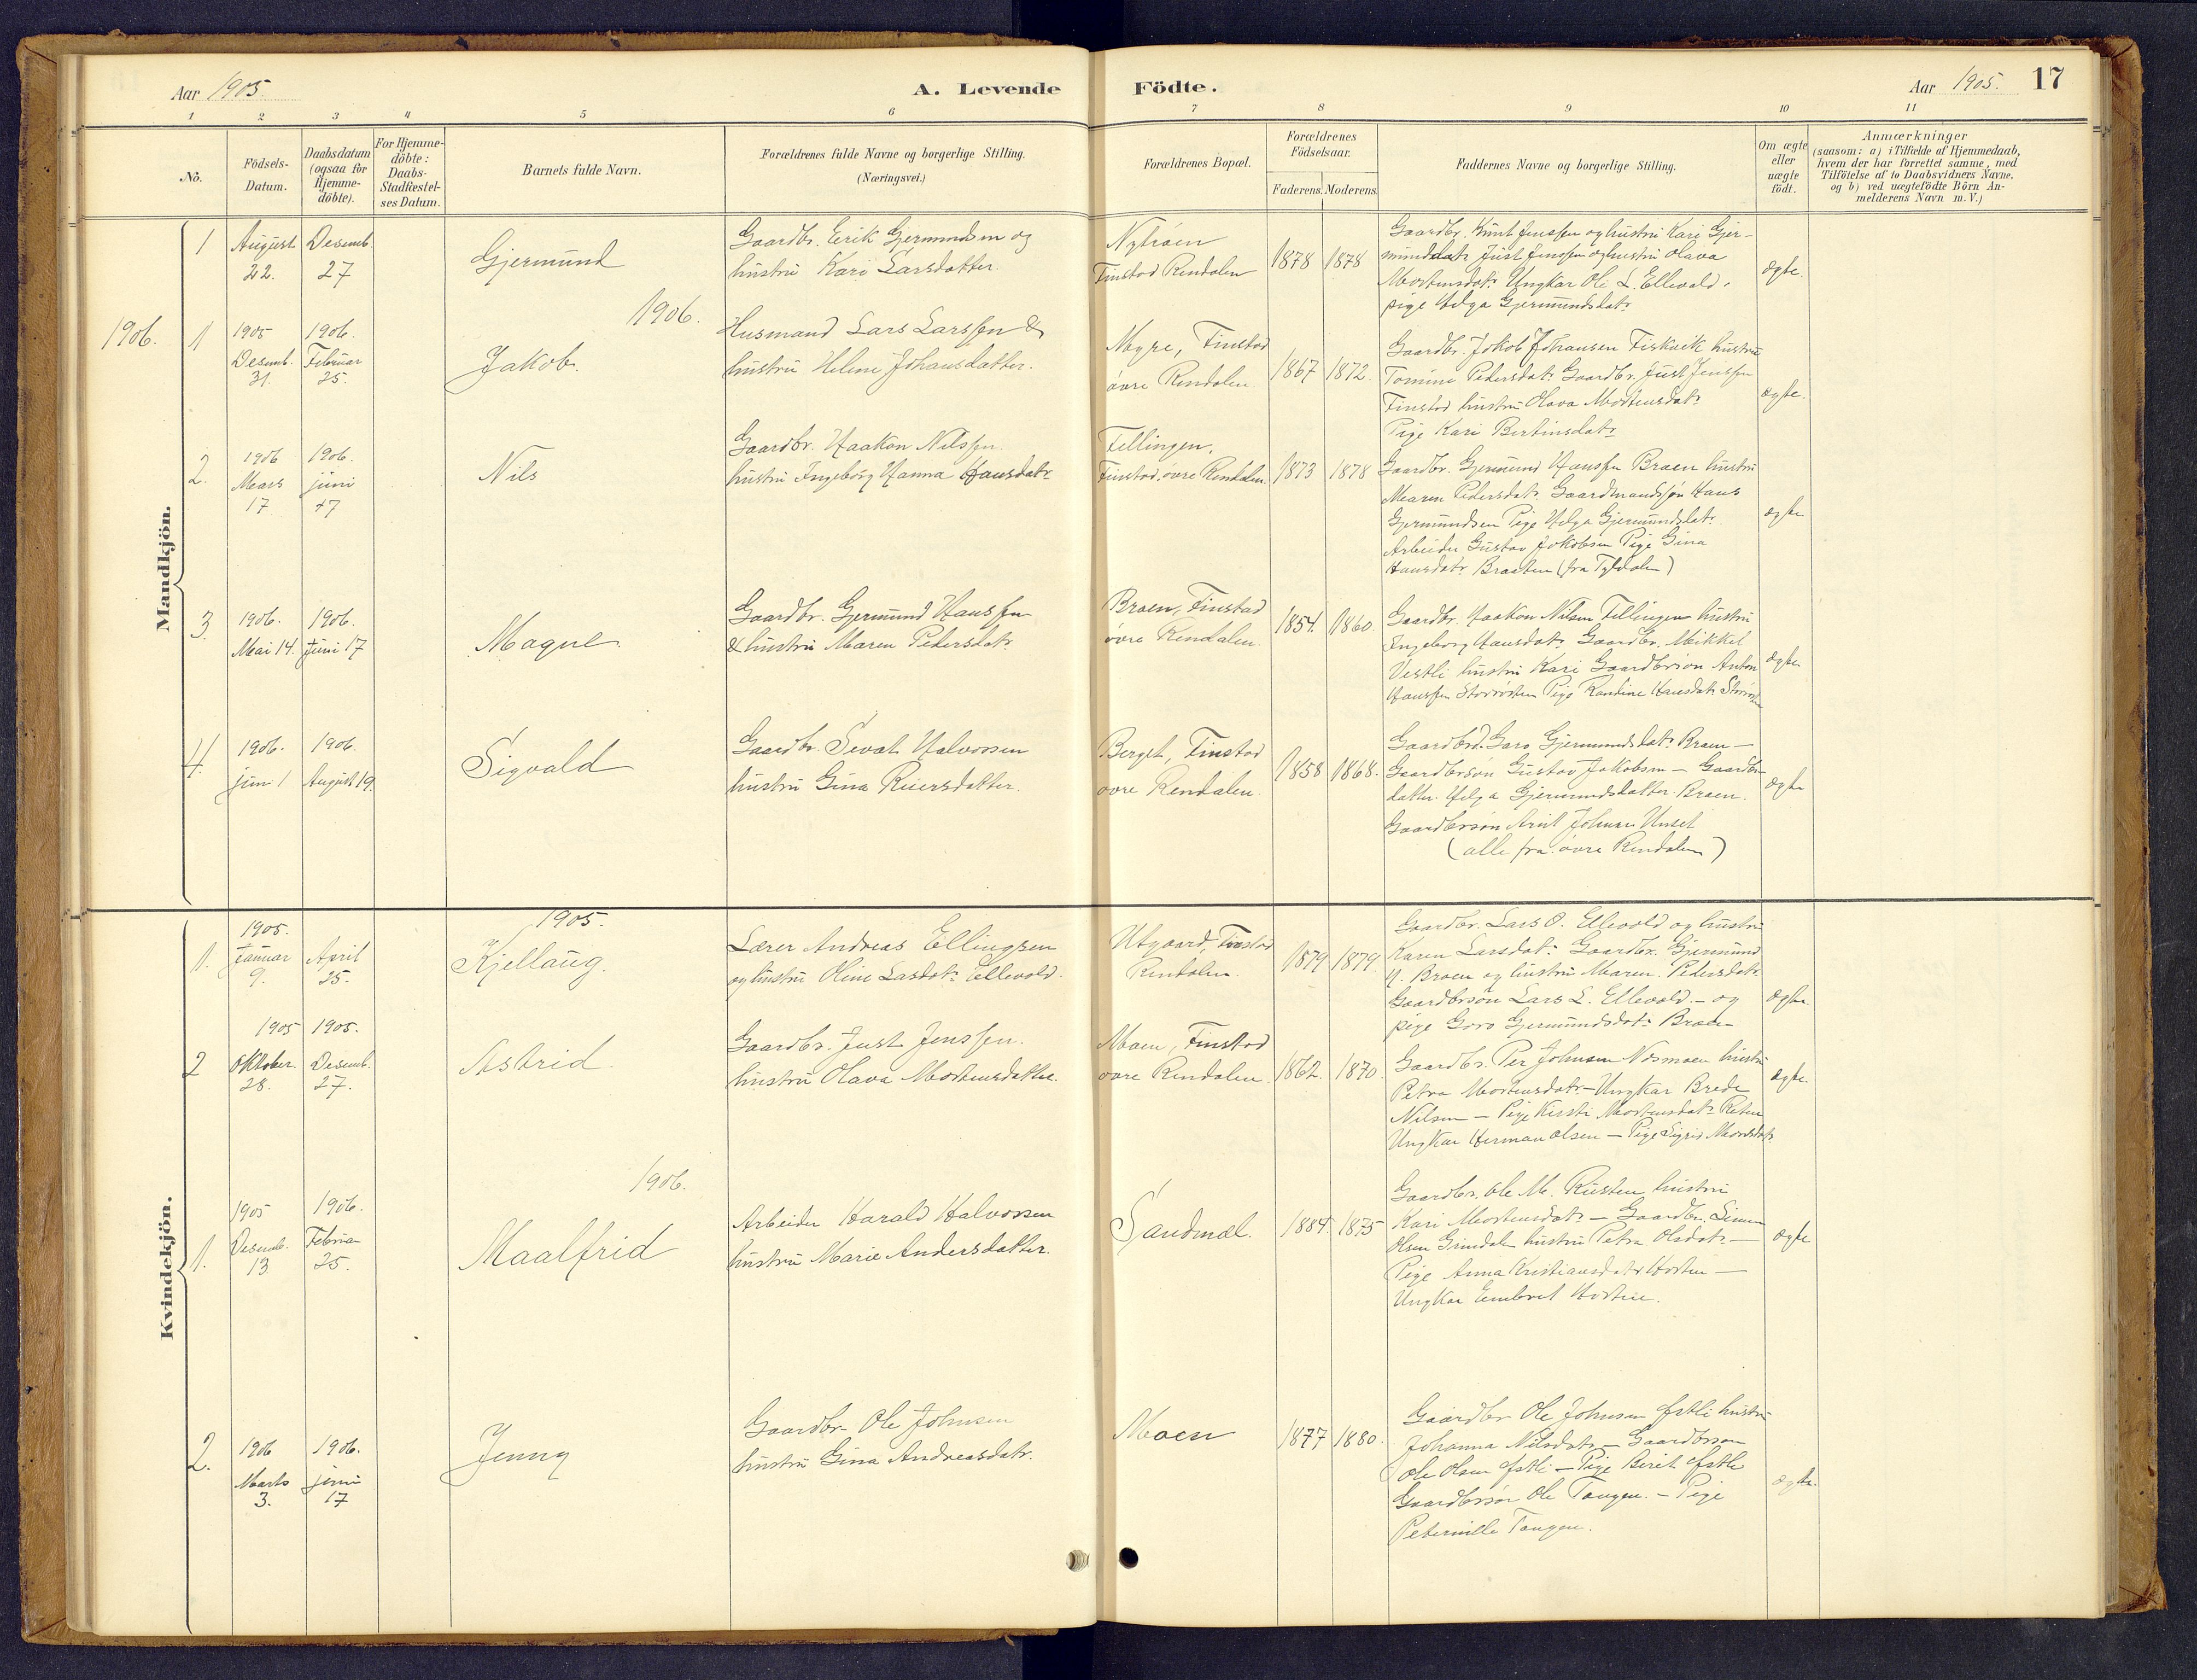 Aar 1905. A. Levende Födte. Aar 1905. 17
1 2 3 4 5 6 7 8 9 10 11
No.
Födsels-
Datum.
Daabsdatum
(ogsaa for
Hjemme-
döbte).
For Hjemme-
döbte:
Daabs-
Stadfæstel-
ses Datum.
Barnets fulde Navn.
Forældrenes fulde Navne og borgerlige Stilling.
(Næringsvei.)
Forældrenes Bopæl.
Forældrenes
Födselsaar.
Faderens. Moderens.
Faddernes Navne og borgerlige Stilling.
Om ægte
eller
uægte
födt.
Anmærkninger
(saasom: a) i Tilfælde af Hjemmedaab,
hvem der har forrettet samme, med
Tilföielse af to Daabsvidners Navne,
og b) ved uægtefödte Börn An-
melderens Navn m. V.)
Mandkjön.
1
August
22.
Desemb.
27
Gjermund
Gaardbr. Erik Gjermundsen og
hustru Kari Larsdatter.
Nytrøen
Finstad Rendalen
1878 1878
Gaardbr. Knut Jenssen og hustru Kari Gjer-
mundsdatr Just Jenssen og hustru Olava
Mortensdatr Ungkar Ole L. Ellevold.
pige Helga Gjermundsdatr
ægte.
1906.
1906.
1
1905
Desemb.
31.
1906.
Februar
25.
Jakob.
Husmand Lars Larssen &
hustru Helene Johansdatter.
Myre, Finstad
øvre Rendalen
1867 1872.
Gaardbr. Jokob Johansen Fiskvik hustru
Tomine Pedersdatr Gaardbr. Just Jenssen
Finstad hustru Olava Mortensdatr
Pige Kari Bertinsdatr
ægte.
2.
1906
Mars
17
1906.
juni
17
Nils
Gaardbr. Haakon Nilssen
hustru Ingeborg Hanna Hansdatr
Fellingen,
Finstad, øvre Rendalen.
1873 1878
Gaardbr. Gjermund Hanssen Braen hustru
Maren Pedersdatr. Gaardmandssøn Hans
Gjermundsen Pige Helga Gjermundsdatr.
Arbeider Gustav Jokobsen Pige Gina
Hansdatr Braaten (fra Tyldalen)
ægte
3.
1906.
Mai 14.
1906.
juni 17
Magne.
Gaardbr. Gjermund Hanssen
& hustru Maren Pedersdatr
Braen, Finstad
øvre Rendalen.
1854. 1860.
Gaardbr. Haakon Nilsen Fellingen hustru
Ingeborg Hansdatr Gaardbr. Mikkel
Vestli hustru Kari Gaardbrsøn Anton
Hanssen Pige Hansdatr
ægte
4.
1906.
juni 1
1906.
August 19.
Sigvald
Gaardbr. Sevat Halvorsen
hustru Gina Reiersdatter.
Berget, Finstad
øvre Rendalen.
1858 1868.
Gaardbrd. Goro Gjermundsdatr Braen —
Gaardbrsøn Gustav Jakobsen — Gaardbr-
datter Helga Gjermundsdatter Braen.
Gaardbrsøn Arnt Johnsen Unset
(alle fra øvre Rendalen)
ægte
Kvindekjön.
1905.
1.
1905.
januar
9.
April
25.
Kjellaug.
Lærer Andreas Ellingsen
og hustru Oline Lasdatr Ellevold.
Utgaard, Finstad
Rendalen.
1879 1879.
Gaardbr. Lars O. Ellevold og hustru
Karen Larsdatr Gaardbr. Gjermund
H. Braen og hustru Maren Pedersdatr
Gaardbrsøn Lars L. Ellevold. — og
pige Goro Gjermundsdatr Braen
ægte.
2
1905
Oktober.
28.
1905.
Desemb.
27.
Astrid.
Gaardbr. Just Jenssen.
hustru Olava Mortensdatter.
Moen, Finstad
øvre Rendalen.
1862. 1870.
Gaardbr. Per Johnsen Nosmoen hustru
Petra Mortensdatr — Ungkar Brede
Nilsen — Pige Kirsti Mortensdatr
Ungkar Herman Olsen — Pige Sigrid
ægte.
1906.
1.
1905
Desemb.
13.
1906.
Februar
25.
Maalfrid
Arbeider Harald Halvorsen
hustru Marie Andersdatter.
Sandmæl.
1884. 1875
Gaardbr. Ole M. Rusten hustru
Kari Mortensdatr — Gaardbr. Simen
Olsen Grindal hustru Petra Olsdatr —
Pige Anna Kristiansdatr —
Ungkar Embret
ægte
2.
1906
Marts
3.
1906.
juni
17
Jenny
Gaardbr. Ole Johnsen
hustru Gina Andreasdatr.
Moen
1877 1880.
Gaardbr Ole Johnsen hustru
Johanna Nilsdatr — Gaardbrsøn
Ole Olsen — Pige Berit
Gaardbrsøn Ole Tangen. — Pige
Peternille Tangen.
ægte.